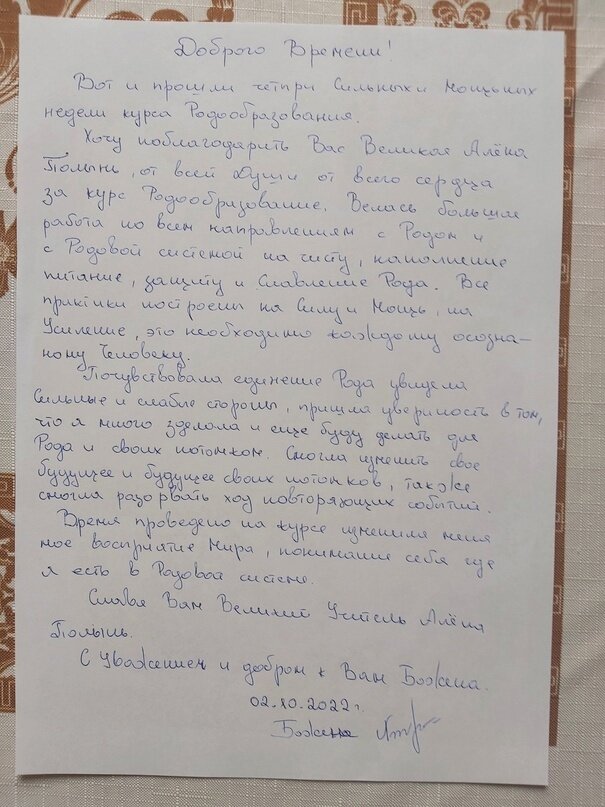 Доброго Времени!
Вот и прошли четыри Сильных и Мощьных
недели курса Родообразования.
Хочу поблагодарить Вас Великая Алёна
Полынь, от всей Души от всего сердца
за курс Родообразование. Велась большая
работа по всем направлениям с Родом и
с Родовой системой на чисту, наполнение
питание, защиту и Славление Рода. Все
практики построены на Силу и Мощь, на
Усиление, это необходимо каждому осозна-
ному Человеку.
Почувствовала единение Рода увидела
Сильные и слабые стороны, пришла уверность в том,
что я много зделала и еще буду делать для
Рода и своих потомком. Смогла изменить свое
будущее и будущее своих потомков, также
смогла разорвать ход повторяющих событий.
Время проведено на курсе изменила меня
мое восприятие Мира, понимание себя где
я есть в Родовой системе.
Славая Вам Великий Учитель Алёна
Полынь.
С Уважением и добром к Вам Божена.
02.10.2022 г.
Божена